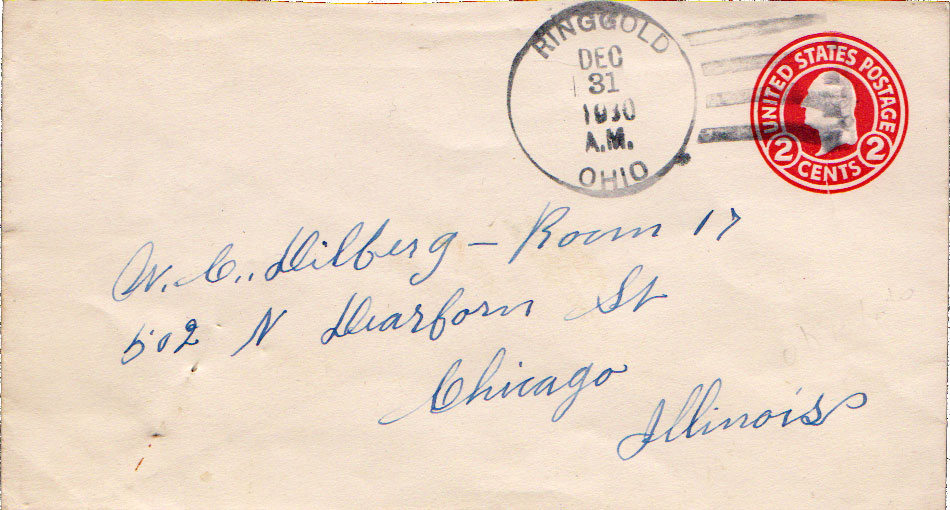 RINGGOLD
DEC
31
1930
A.M.
OHIO
UNITED STATES POSTAGE
2 CENTS 2
W. C. Dilberg - Room 17
502 N Dearborn St
Chicago
Illinois